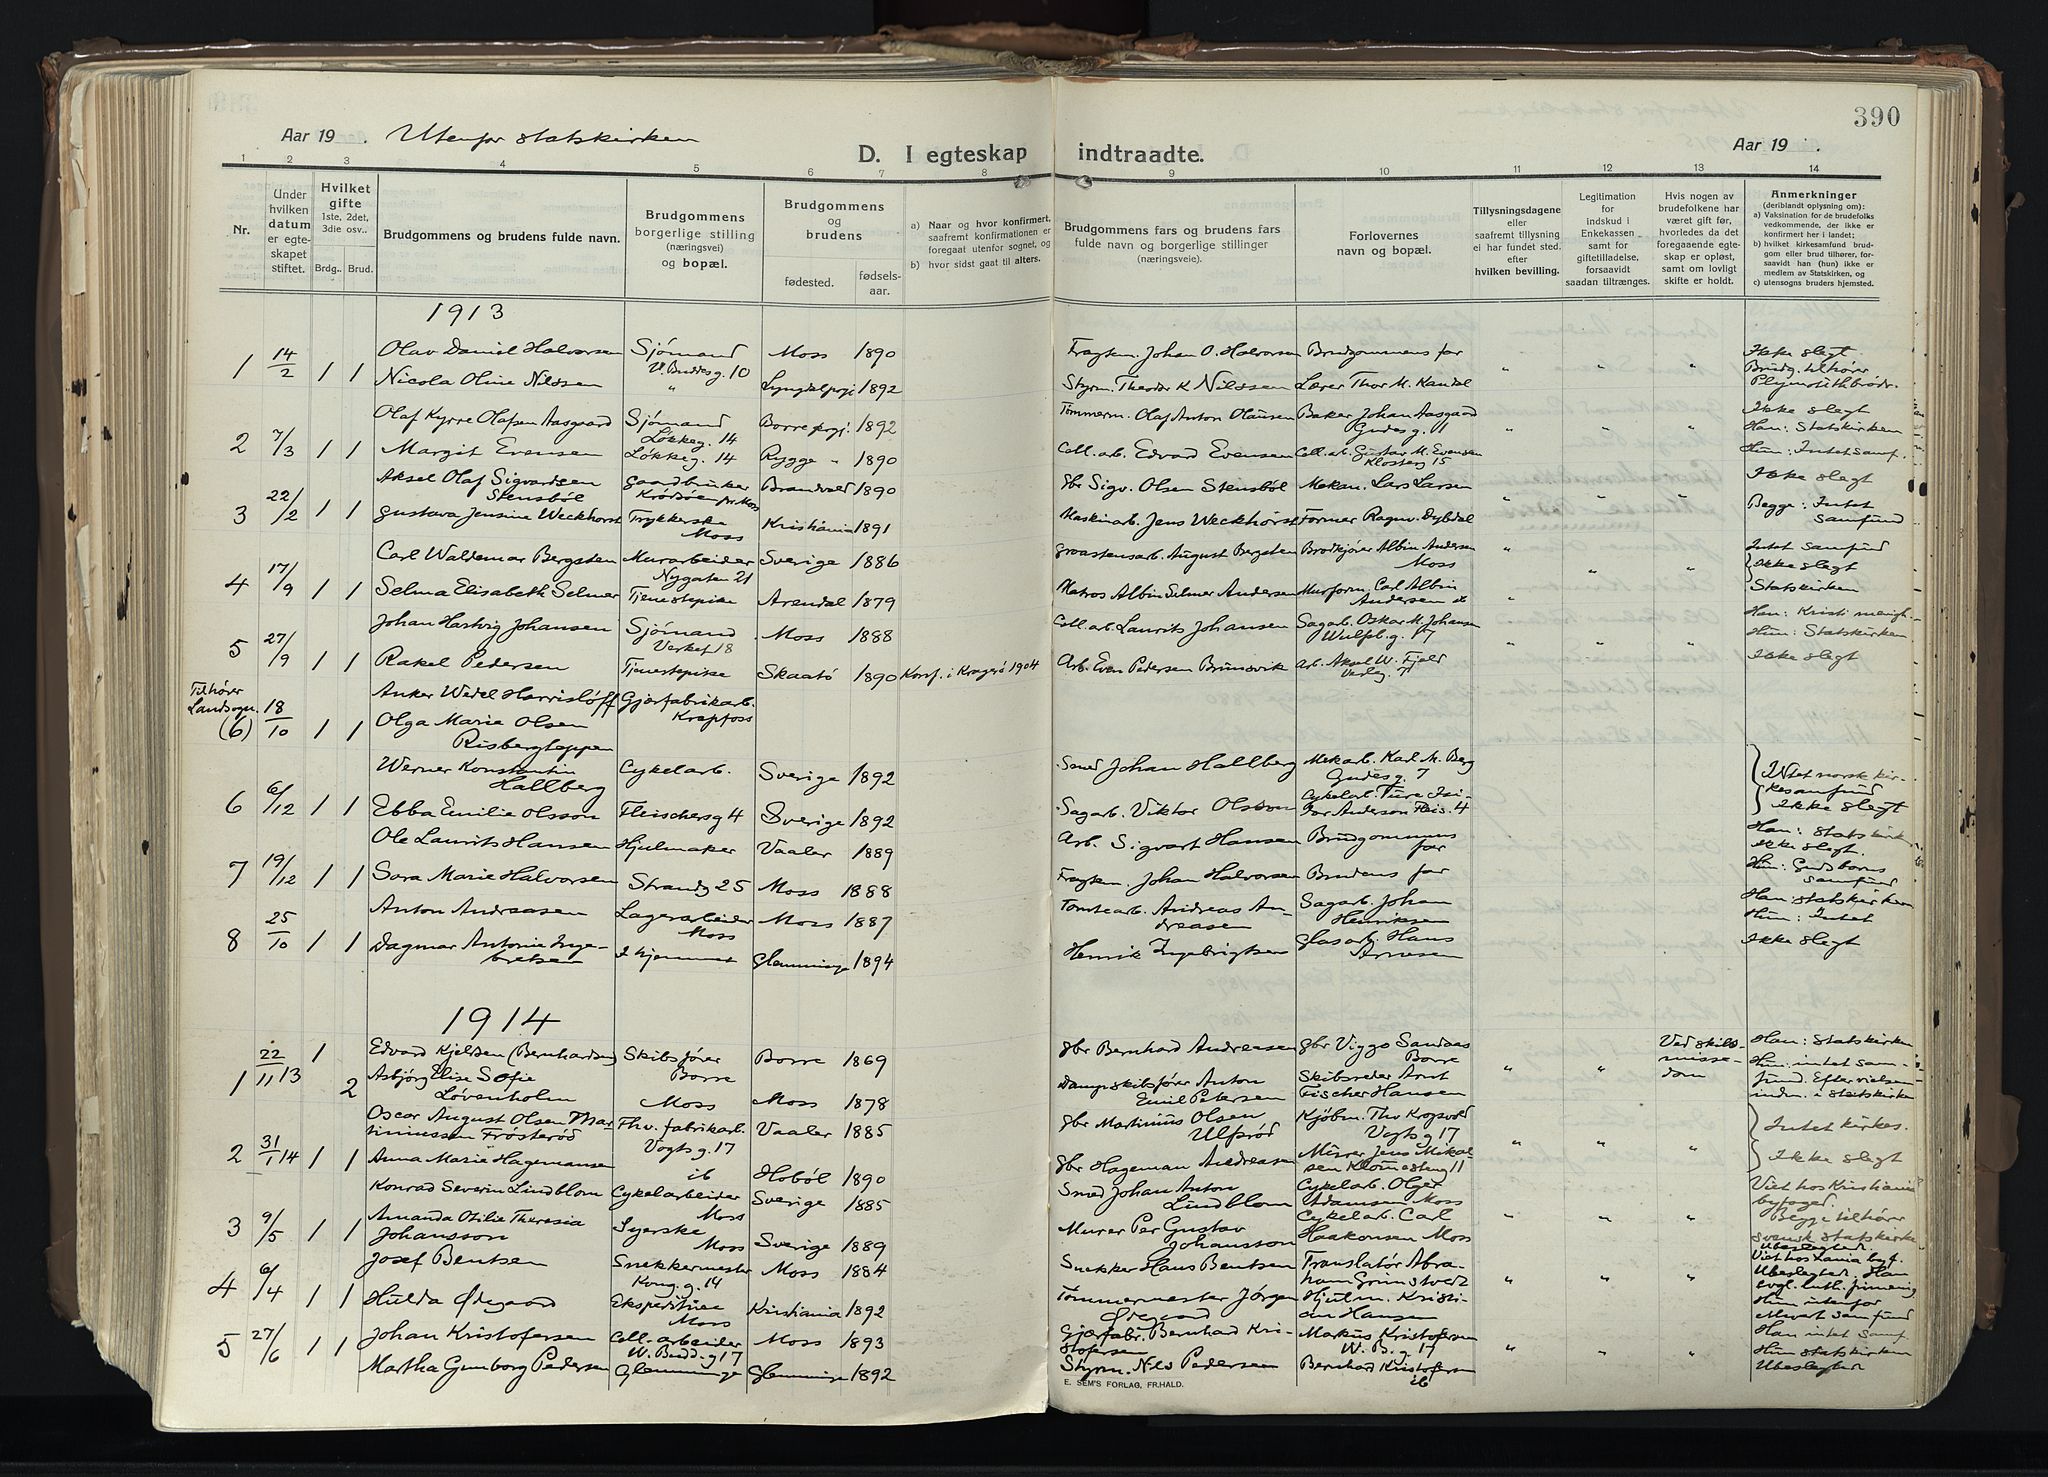 390
Aar 19 . Utenfor statskirken
D. I egteskap indtraadte.
Aar 19 .
1 2 3 4 5 6 7 8 9 10 11 12 13 14
Nr.
Under hvilken datum er egteskapet stiftet.
Hvilket gifte 1ste, 2det, 3die osv..
Brdg.. Brud.
Brudgommens og brudens fulde navn.
Brudgommens borgerlige stilling (næringsvei) og bopæl.
Brudgommens og brudens
fødested.
fødsels-aar.
a) Naar og hvor konfirmert, saafremt konfirmationen er foregaaet utenfor sognet, og
b) hvor sidst gaat til alters.
Brudgommens fars og brudens fars fulde navn og borgerlige stillinger (næringsveie).
Forlovernes navn og bopæl.
Tillysningsdagene eller saafremt tillysning ei har fundet sted. efter hvilken bevilling.
Legitimation for indskud i Enkekassen samt for giftetilladelse, forsaavidt saadan tiltrænges.
Hvis nogen av brudefolkene har været gift før, hvorledes da det foregaaende egteskap er opløst, samt om lovligt skifte er holdt.
Anmerkninger (deriblandt oplysning om):
a) Vaksination for de brudefolks vedkommende, der ikke er konfirmert her i landet;
b) hvilket kirkesamfund brudgom eller brud tilhører, forsaavidt han (hun) ikke er medlem av Statskirken, og
c) utensogns bruders hjemsted.
1913
1 14/2 1 1 Olav Daniel Halvorsen Sjømand V. Buddesg. 10 Moss 1890 Fragtem. Johan O. Halvorsen Brudgommens far Ikke slegt
Nicola Oline Nilssen " 1892 Styrm. Theodor K Nilssen Lærer Thor M. Kandal " " " Brudg. tilhører Plymouthbrødr.
2 7/3 1 1 Olaf Kyrre Olafsen Aasgaard Sjømand Løkkeg. 14 Borre prgj. 1892 Tømmerm. Olaf Anton Olausen Baker Johan Aasgaard Gudesg. 11 Ikke slegt
Margit Evensen Løkkeg. 14 Rygge " 1890 Cell. arb. Edvard Evensen Cell. arb. Gustav M. Evensen Klosterg 15 " " " Han: Statskirken Hun: Intet samf.
3 22/2 1 1 Aksel Olaf Sigvardsen Stensbøl Gaardbruker Krødsøen pr. Moss Brandvold 1890 Gbr Sigv. Olsen Stensbøl Mekan. Lars Larsen Ikke slegt
Gustava Jensine Weckhorst Trykkerske Moss Kristiania 1891 Maskinarb. Jens Weckhorst Former Ragnv. Dybdal " " " Begge: Intet samfund
4 17/9 1 1 Carl Waldemar Bergsten Murarbeider Nygaten 21 Sverige 1886 Graastensarb. August Bergsten Brødkjører Albin Andersen Moss " " " Intet samfund Ikke slegt
Selma Elisabeth Selmer Tjenestepike Arendal 1879 Matros Albin Selmer Andersen Murform. Carl Albin Andersen ib " Statskirken
5 27/9 1 1 Johan Hartvig Johansen Sjømand Verket 18 Moss 1888 Cell. arb. Laurits Johansen Sagarb. Oskar M. Johansen Wulfsb. g. 17 Han: Kristi menigh. Hun: Statskirken
Rakel Pedersen Tjenestepike Skaatö 1890 Konf. i Kragerø 1904 Arb. Even Pedersen Brunsvik Arb. Aksel W. Fjeld " " " Ikke slegt
Tilhører Landsogn.
(6) 18/10 1 1 Anker Wedel Harrisløff Gjærfabrikarb. Krapfoss
Olga Marie Olsen Risbergtoppen
6 6/12 1 1 Werner Konstantin Hallberg Cykelarb. Sverige 1892 Smed Johan Hallberg Mekarb. Karl M. Berg Gudesg. 7 Intet norsk kirkesamfund
Ebba Emilie Olsson Fleischersg 4 Sverige 1892 Sagarb. Viktor Olsson Cykelarb. Ture Isidor Anderson Fleis. 4 Ikke slegt
7 19/12 1 1 Ole Laurits Hansen Hjulmaker Vaaler 1889 Arb. Sigvart Hansen Brudgommens far Han: Statskirk. ikke slegt.
Sara Marie Halvorsen Strandg 25 Moss 1888 Fragtem. Johan Halvorsen Brudens far Hun: Guds borns samfund
8 25/10 1 1 Anton Andreasen Lagerarbeider Moss Moss 1887 Tomtearb. Andreas Andreasen Sagarb. Johan Henriksen Han: statskirken Hun: Intet
Dagmar Antonie Ingebretsen I hjemmet Glemminge 1894 Henrik Ingebrigtsen Glasarb. Hans Arnesen Ikke slegt
1914
1 22/11 13 1 Edvard Kjelsen (Bernhardsen) Skibsfører Borre Borre 1869 Gbr Bernhard Andreasen Gbr Viggo Sandaas Borre Ved skilsmissedom Han: Statskirken
2 Asbjørg Elise Sofie Løvenholm Moss Moss 1878 Dampskibsfører Anton Emil Petersen Skibsreder Arnt Fischer Hansen " " Hun: intet samfund. Efter vielsen indm. i statskirken
2 31/1 14 1 1 Oscar August Olsen Martiniussen Frösteröd Thv. fabrikarb. Vogtsg. 17 Vaaler 1885 Gbr Martinius Olsen Ulfsröd Kjøbm. Thv Krogsvold Vogtsg 17 " " " Intet kirkes.
Anna Marie Hagemansen ib Hobøl 1890 Gbr Hageman Andreasen Murer Jens Mikalsen 11 Ikke slegt
3 9/5 1 1 Konrad Severin Lindblom Cykelarbeider Moss Sverige 1885 Smed Johan Anton Lindblom Cykelarb. Olger Adamsen Moss Viet hos Kristiania byfoged.
Amanda Otilie Theresia Johansson Syerske Moss Sverige 1889 Murer Per Gustav Johansson Cykelarb. Carl Haakonsen Moss " " " Begge tilhører svensk statskirke Ubeslegted.
4 6/4 1 1 Josef Bentsen Snekkermester Kong. g. 14 Moss 1884 Snekker Hans Bentsen Translatør Abraham Grimstvedt " " " Viet hos Xania byf. Ubeslegted. Han evgl. luth. frimenig
Hulda Ødegaard Ekspeditrice Moss Kristiania 1892 Tømmermester Jørgen Ødegaard Hjulm. Kristian Hansen Hun utenfor ethvert samfund
5 27/6 1 1 Johan Kristofersen Cell. arbeider W. Budd. g 17 Moss 1893 Gjærfabr. Bernhard Kristofersen Markus Kristofersen W. B. g. 17 " " " Han intet samf. Hun statskirken
Martha Gunborg Pedersen Glemminge Glemminge 1892 Styrm. Nils Pedersen Bernhard Kristofersen ib Ubeslegted
E. SEM'S FORLAG, FR.HALD.